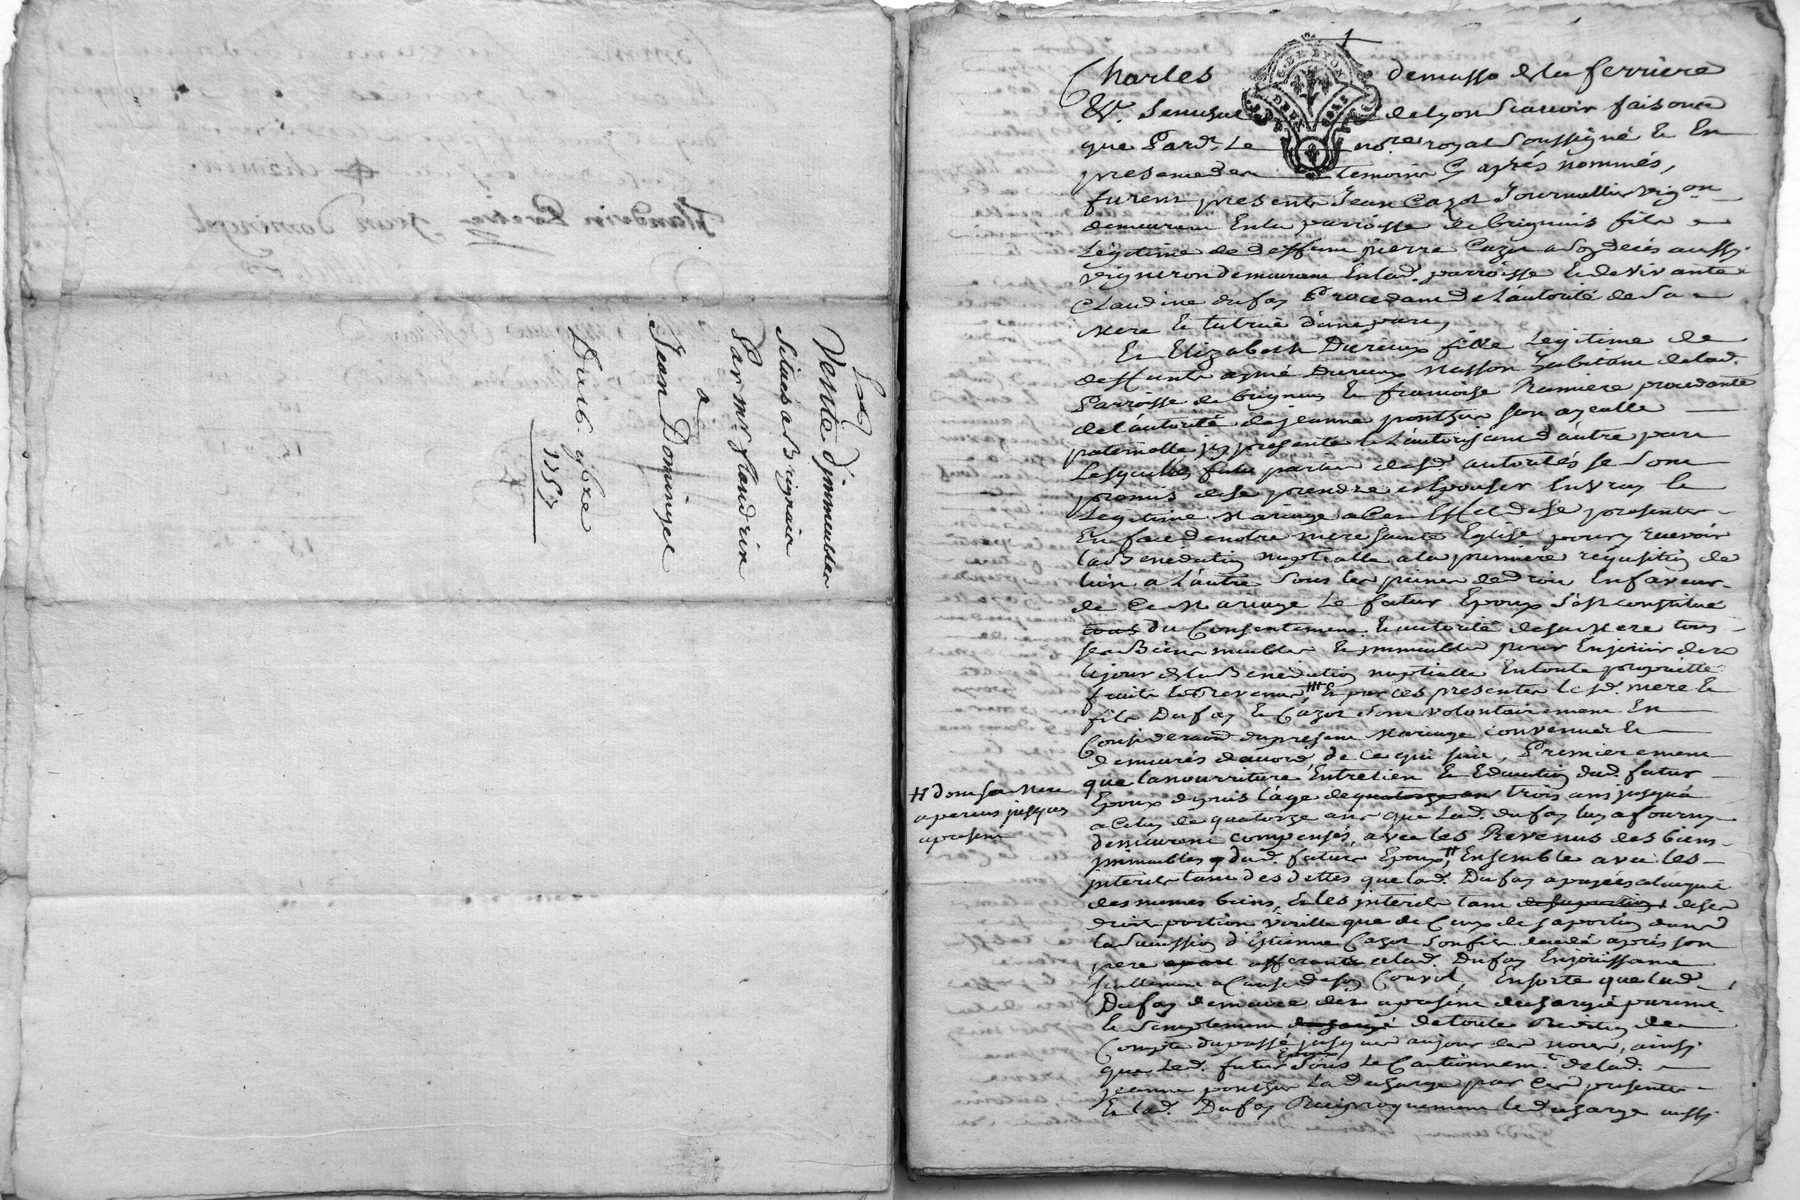 Vente d'jmmeubles
Situés a Brignais
Par mr. flandrin
a
Jean Dominget
Du 16 9bre
1757
1
Charles demasso de la ferriere
&r. Senechal de lyon Scavoir faisons
que Pard. Le nore royal Soussigné & En
presence des temoins Cy après nommés,
furent presents Jean Cazot Journallier vigon
demeurant En la parroisse de brignais fils
Legitime de deffunt pierre Cazot a Son deces aussi
vigneron demeurant En lad. parroisse & de vivante
Claudine dufay Procedant de L'autorité de Sa
Mere & tutrice d'une part,
Et Elizabeth Durieux fille Legitime de
deffunts aymé Durieux Masson habitant de lad.
Parroisse de brignais & francoise Ramiere procedante
de l'autorité de jeanne ponthus son ayeulle
paternelle jcy presente & L'autorisant d'autre part
Lesquelles parties desd. autorités se Sont
promis de se prendre et Epouser En vray &
Legitime Mariage a Cet Effet de Se presenter
En face de notre mere Sainte Eglise pour y recevoir
la Benediction nuptialle a la premiere requisition de
l'un a L'autre Sous les peines de droit En faveur
de Ce Mariage Le futur Epoux S'est constitué
tous du Consentement & autorité de sa Mere tous
ses Biens meubles & immeubles pour En jouir des
le jour de la Benediction nuptialle En toute proprieté
fruits & Revenus & par ces presentes lesd. mere &
fils Dufay & Cazot Sont volontairement En
Consideration du present Mariage Convenus &
demeurés d'accord de ce qui suit, Premierement
que la nourriture Entretien & Education dud. futur
Epoux depuis l'age de quatorze ans trois ans jusqu'a
a Celuy de quatorze ans que Lad. dufay luy a fourny
demeurent compensés, avec les Revenus des biens
jmmeubles dud. futur Epoux, # Ensemble avec les
# dont sa Mere
a perçus jusques
a present
jnterets tant des dettes que lad. Dufay a payées a l'acquit
des memes biens, & les jnterets tant de ses
droits portion virille que de Ceux de sa portion dans
la Succession d'Estienne Cazot Son fils decedé après son
pere afferante a lad. Dufay En jouissance
seullement a Cause de son Convol, En sorte que lad.
Dufay demeure des a present dechargée purement
& Simplement de toute Reddition de
Compte du passé jusques aujourd'huy, ainsy
que Led. futur Epoux Sous Le Cautionnemt. de lad.
jeanne ponthus La decharge par Ces presentes
Et lad. Dufay Reciproquement le decharge aussi